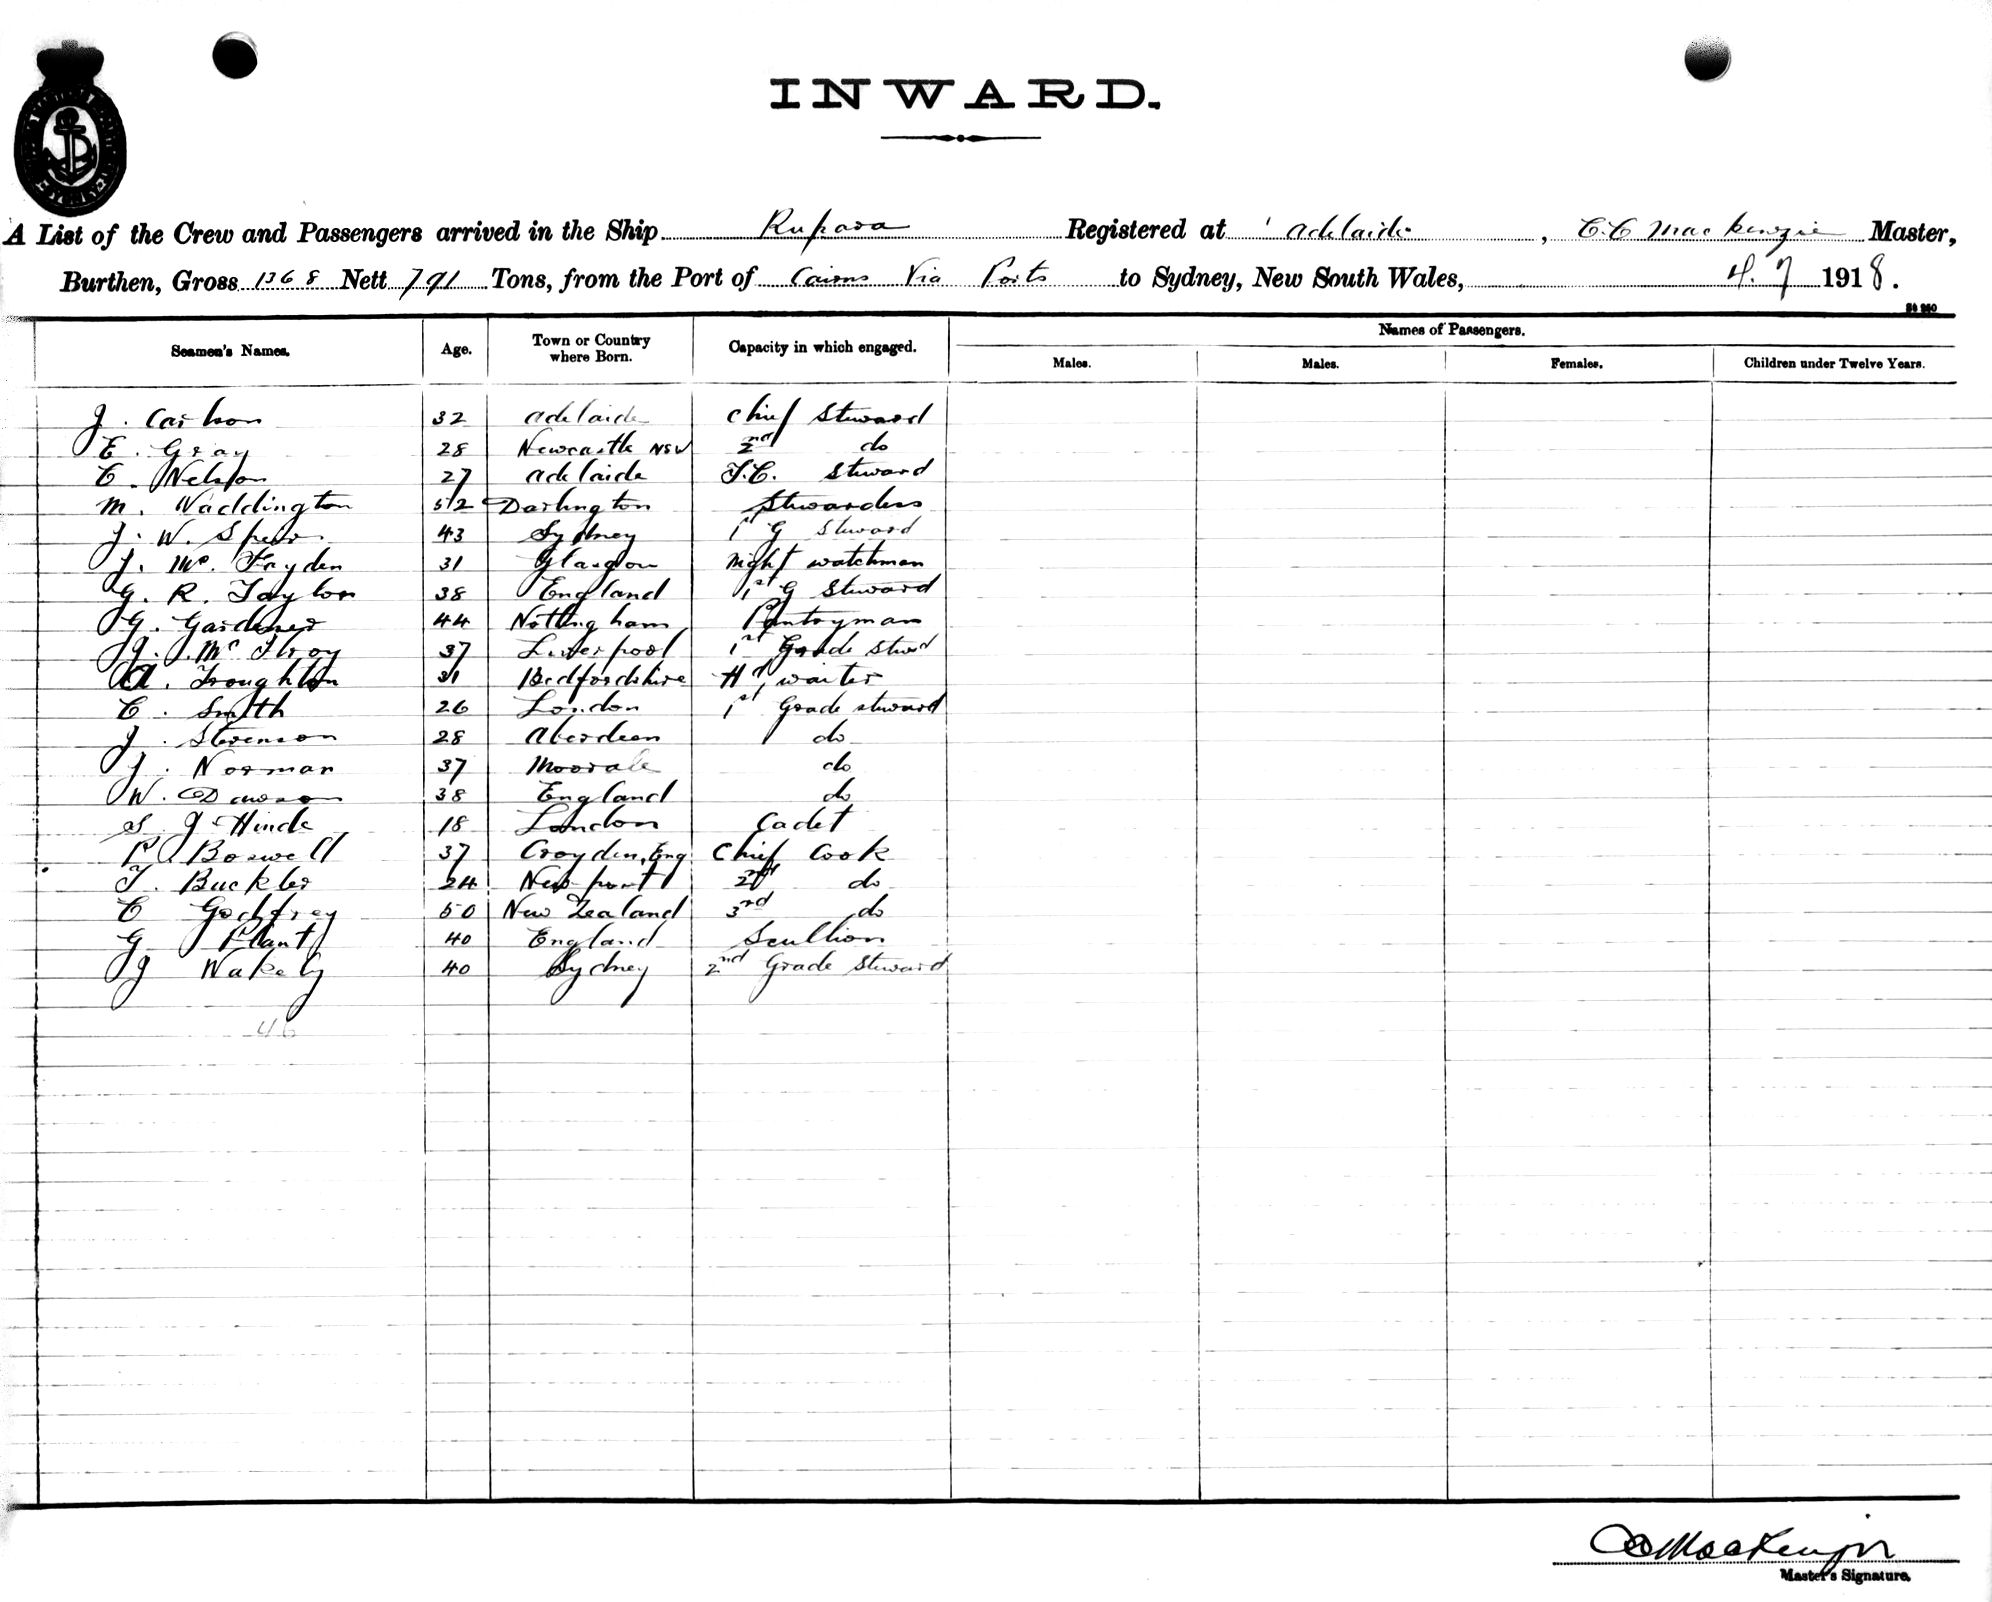 INWARD.
A List of the Crew and Passengers arrived in the Ship Rupara Registered at Adelaide, C.C Mackenzie Master,
Burthen, Gross 1368 Nett 791 Tons, from the Port of Cairns Via Ports to Sydney, New South Wales, 4.7 1918.
Names of Passengers.
Seamen's Names. Age. Town or Country where Born. Capacity in which engaged. Males. Males. Females. Children under Twelve Years.
J. Carlson 32 Adelaide Chief Steward
E. Gray 28 Newcastle NSW 2nd do
C. Nelson 27 Adelaide F.C. Steward
M. Waddington 52 Darlington Stewardess
J. W. 43 Sydney 1st G Steward
J. Mc. Fayden 31 Glasgow Night watchman
G. R. Taylor 38 England 1st G Steward
G. Gardener 44 Nottingham Pantryman
J. Mc Ilroy 37 Liverpool 1st Grade Stwd
A. Troughton 31 Bedfordshire Hd waiter
C. Smith 26 London 1st Grade steward
J. Stevenson 28 Aberdeen do
J. Norman 37 do
W. Dawson 38 England do
S. J. Hinde 18 London Cadet
P Boswell 37 Croyden, Eng Chief Cook
T. Buckler 24 Newport 2nd do
C Godfrey 50 New Zealand 3rd do
G Plant 40 England Scullion
J Wakely 40 Sydney 2nd Grade Steward
46
CC MacKenzie
Master's Signature.